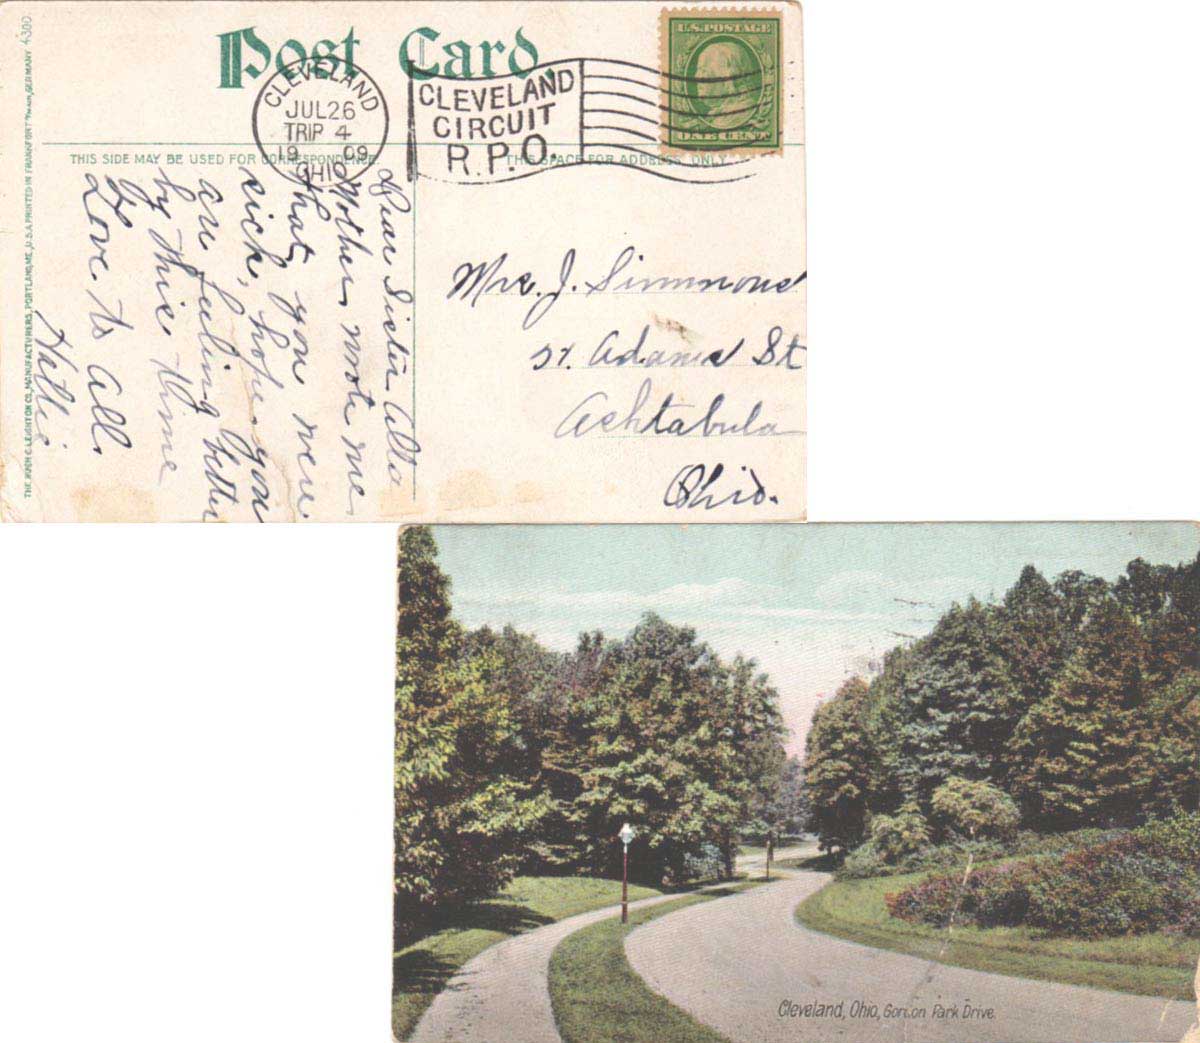 Post Card.
CLEVELAND
JUL 26
TRIP 4
19 09
OHIO
CLEVELAND
CIRCUIT
R.P.O.
U.S. POSTAGE
ONE CENT
THIS SIDE MAY BE USED FOR CORRESPONDENCE.
THIS SPACE FOR ADDRESS ONLY
THE HUGH C. LEIGHTON CO., MANUFACTURERS, PORTLAND, ME., U.S.A. PRINTED IN FRANKFORT GERMANY 4300
Dear Sister Alta
Mother wrote me
that you were
sick, hope you
are feeling better
by this time
Love to All.
Hattie
Mrs. J. Simmons
Adams St
Ashtabula
Ohio.
Cleveland, Ohio, Gordon Park Drive.